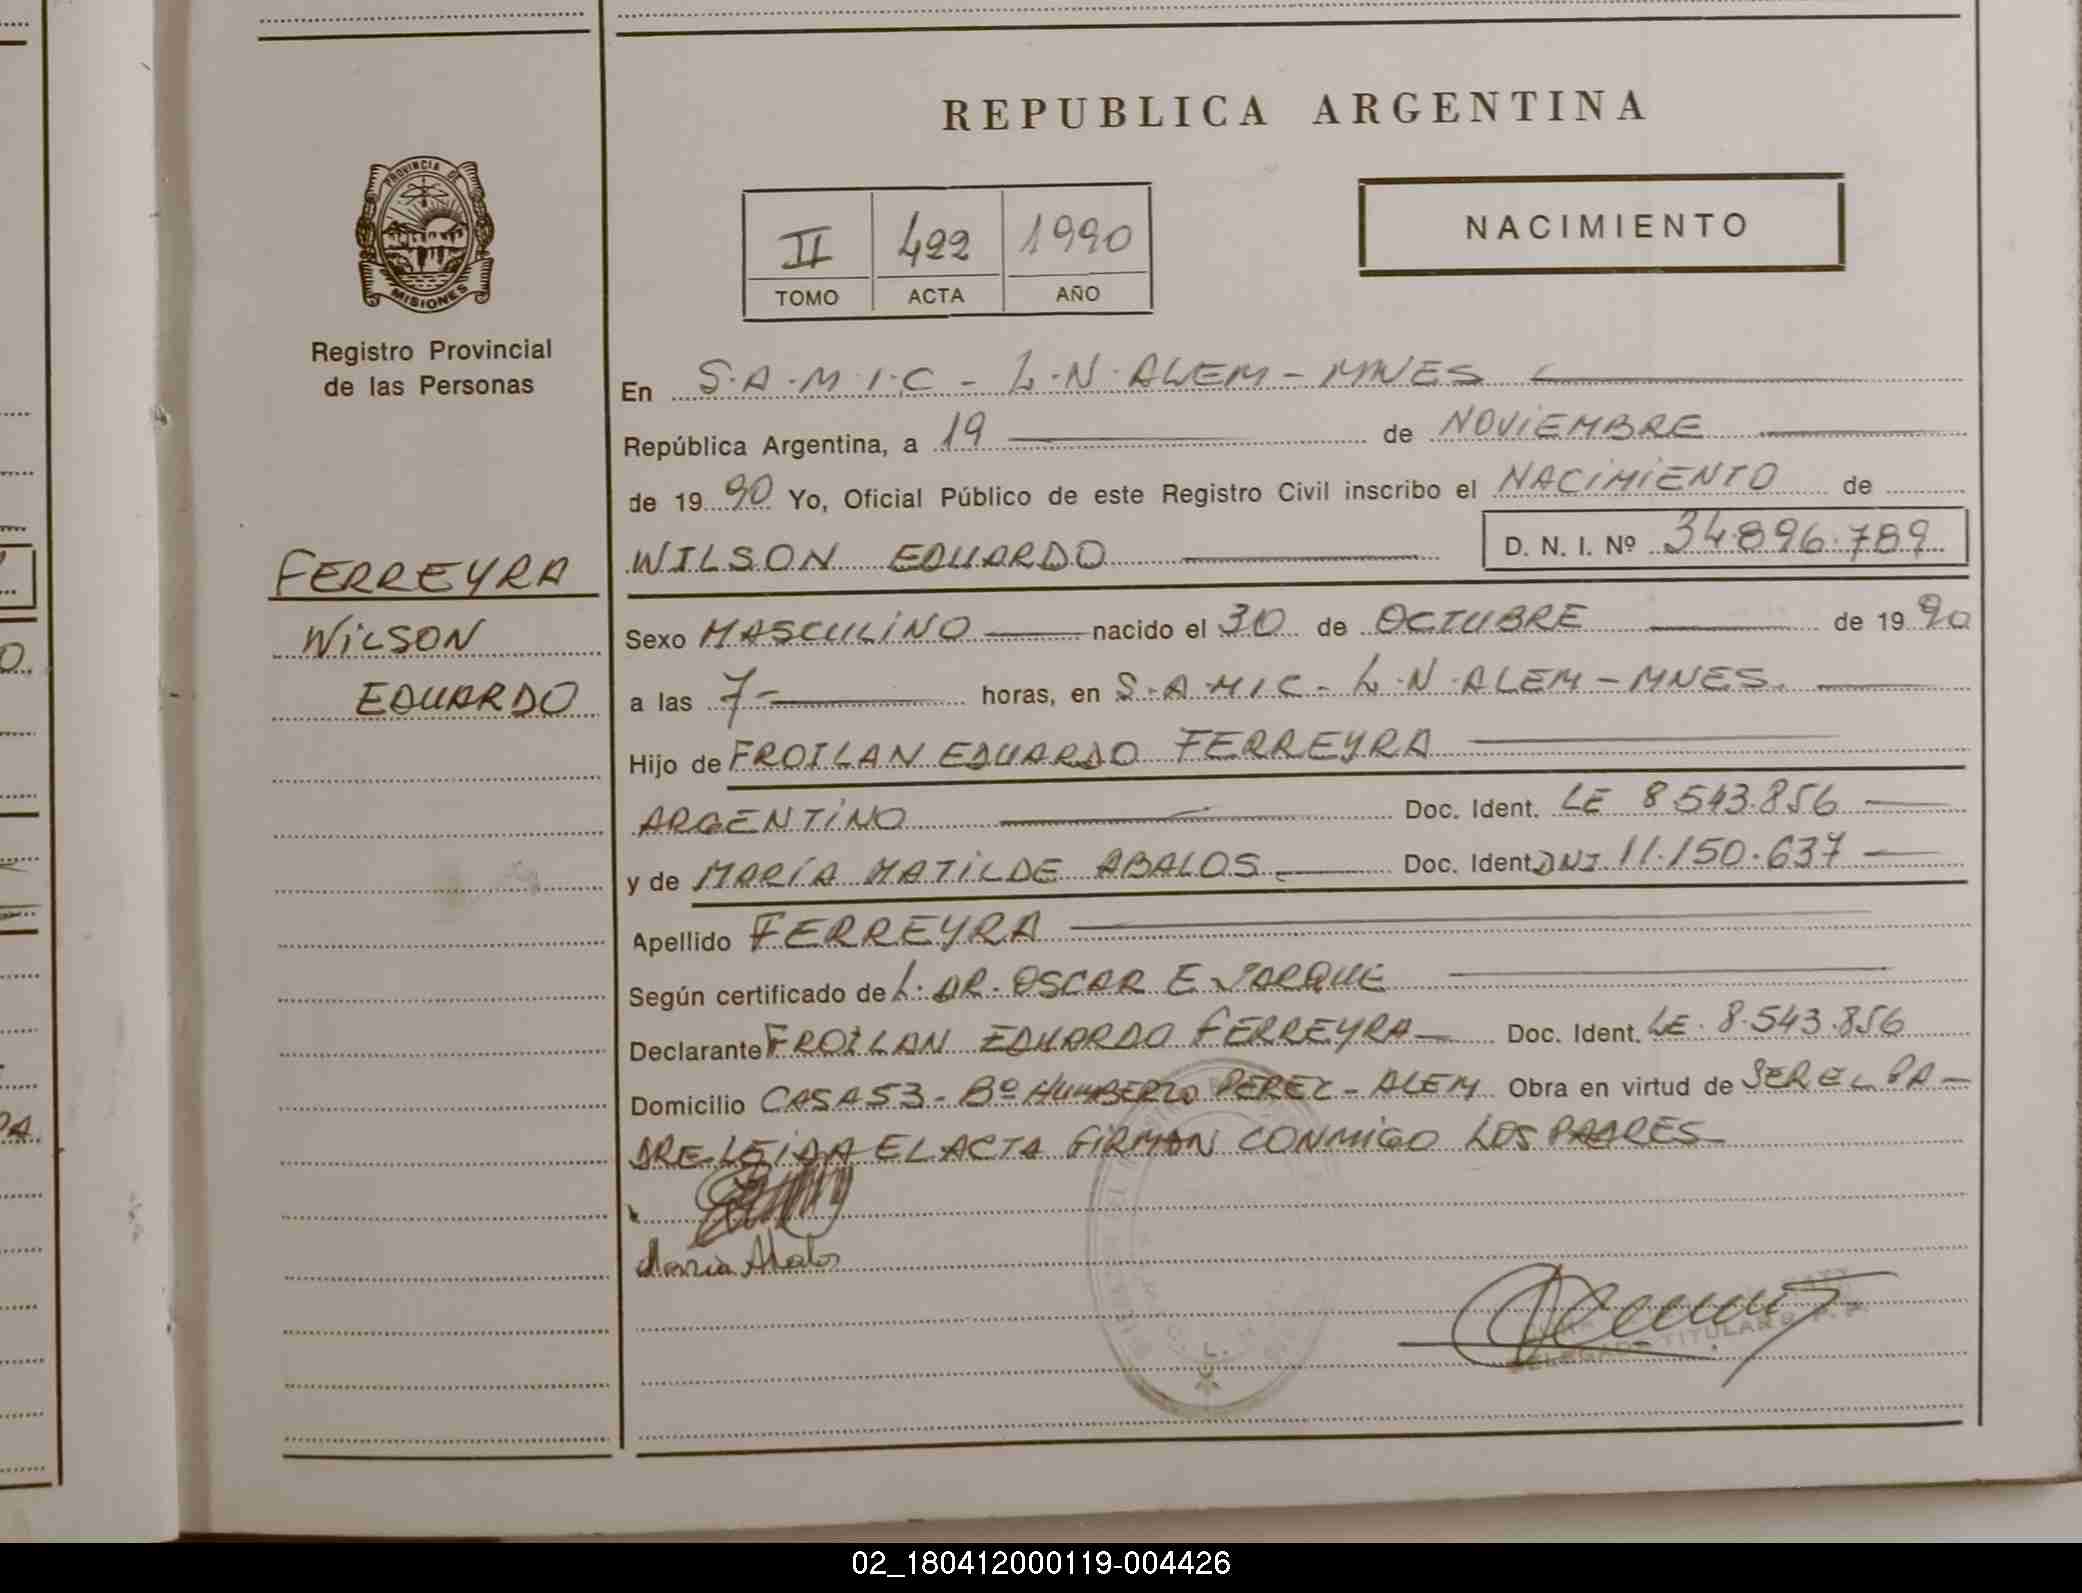 REPUBLICA ARGENTINA
PROVINCIA DE
MISIONES
Registro Provincial
de las Personas
II 422 1990
TOMO ACTA AÑO
NACIMIENTO
En S.A.M.I.C - L.N. ALEM - MNES
República Argentina, a 19 de NOVIEMBRE
de 19 90 Yo, Oficial Público de este Registro Civil inscribo el NACIMIENTO de
WILSON EDUARDO D. N. I. Nº 34.896.789
FERREYRA
WILSON
EDUARDO
Sexo MASCULINO nacido el 30 de OCTUBRE de 19 90
a las 7- horas, en S.A.M.I.C - L.N. ALEM - MNES.
Hijo de FROILAN EDUARDO FERREYRA
ARGENTINO Doc. Ident. LE 8.543.856
y de MARÍA MATILDE ABALOS Doc. Ident. DNI 11.150.637
Apellido FERREYRA
Según certificado de L. DR. OSCAR E JARQUE
Declarante FROILAN EDUARDO FERREYRA Doc. Ident. LE. 8.543.856
Domicilio CASA 53 - Bº HUMBERTO PEREZ - ALEM Obra en virtud de SER EL PA-
DRE LEIDA EL ACTA FIRMAN CONMIGO LOS PADRES
Maria Abalos
TITULAR
02_180412000119-004426